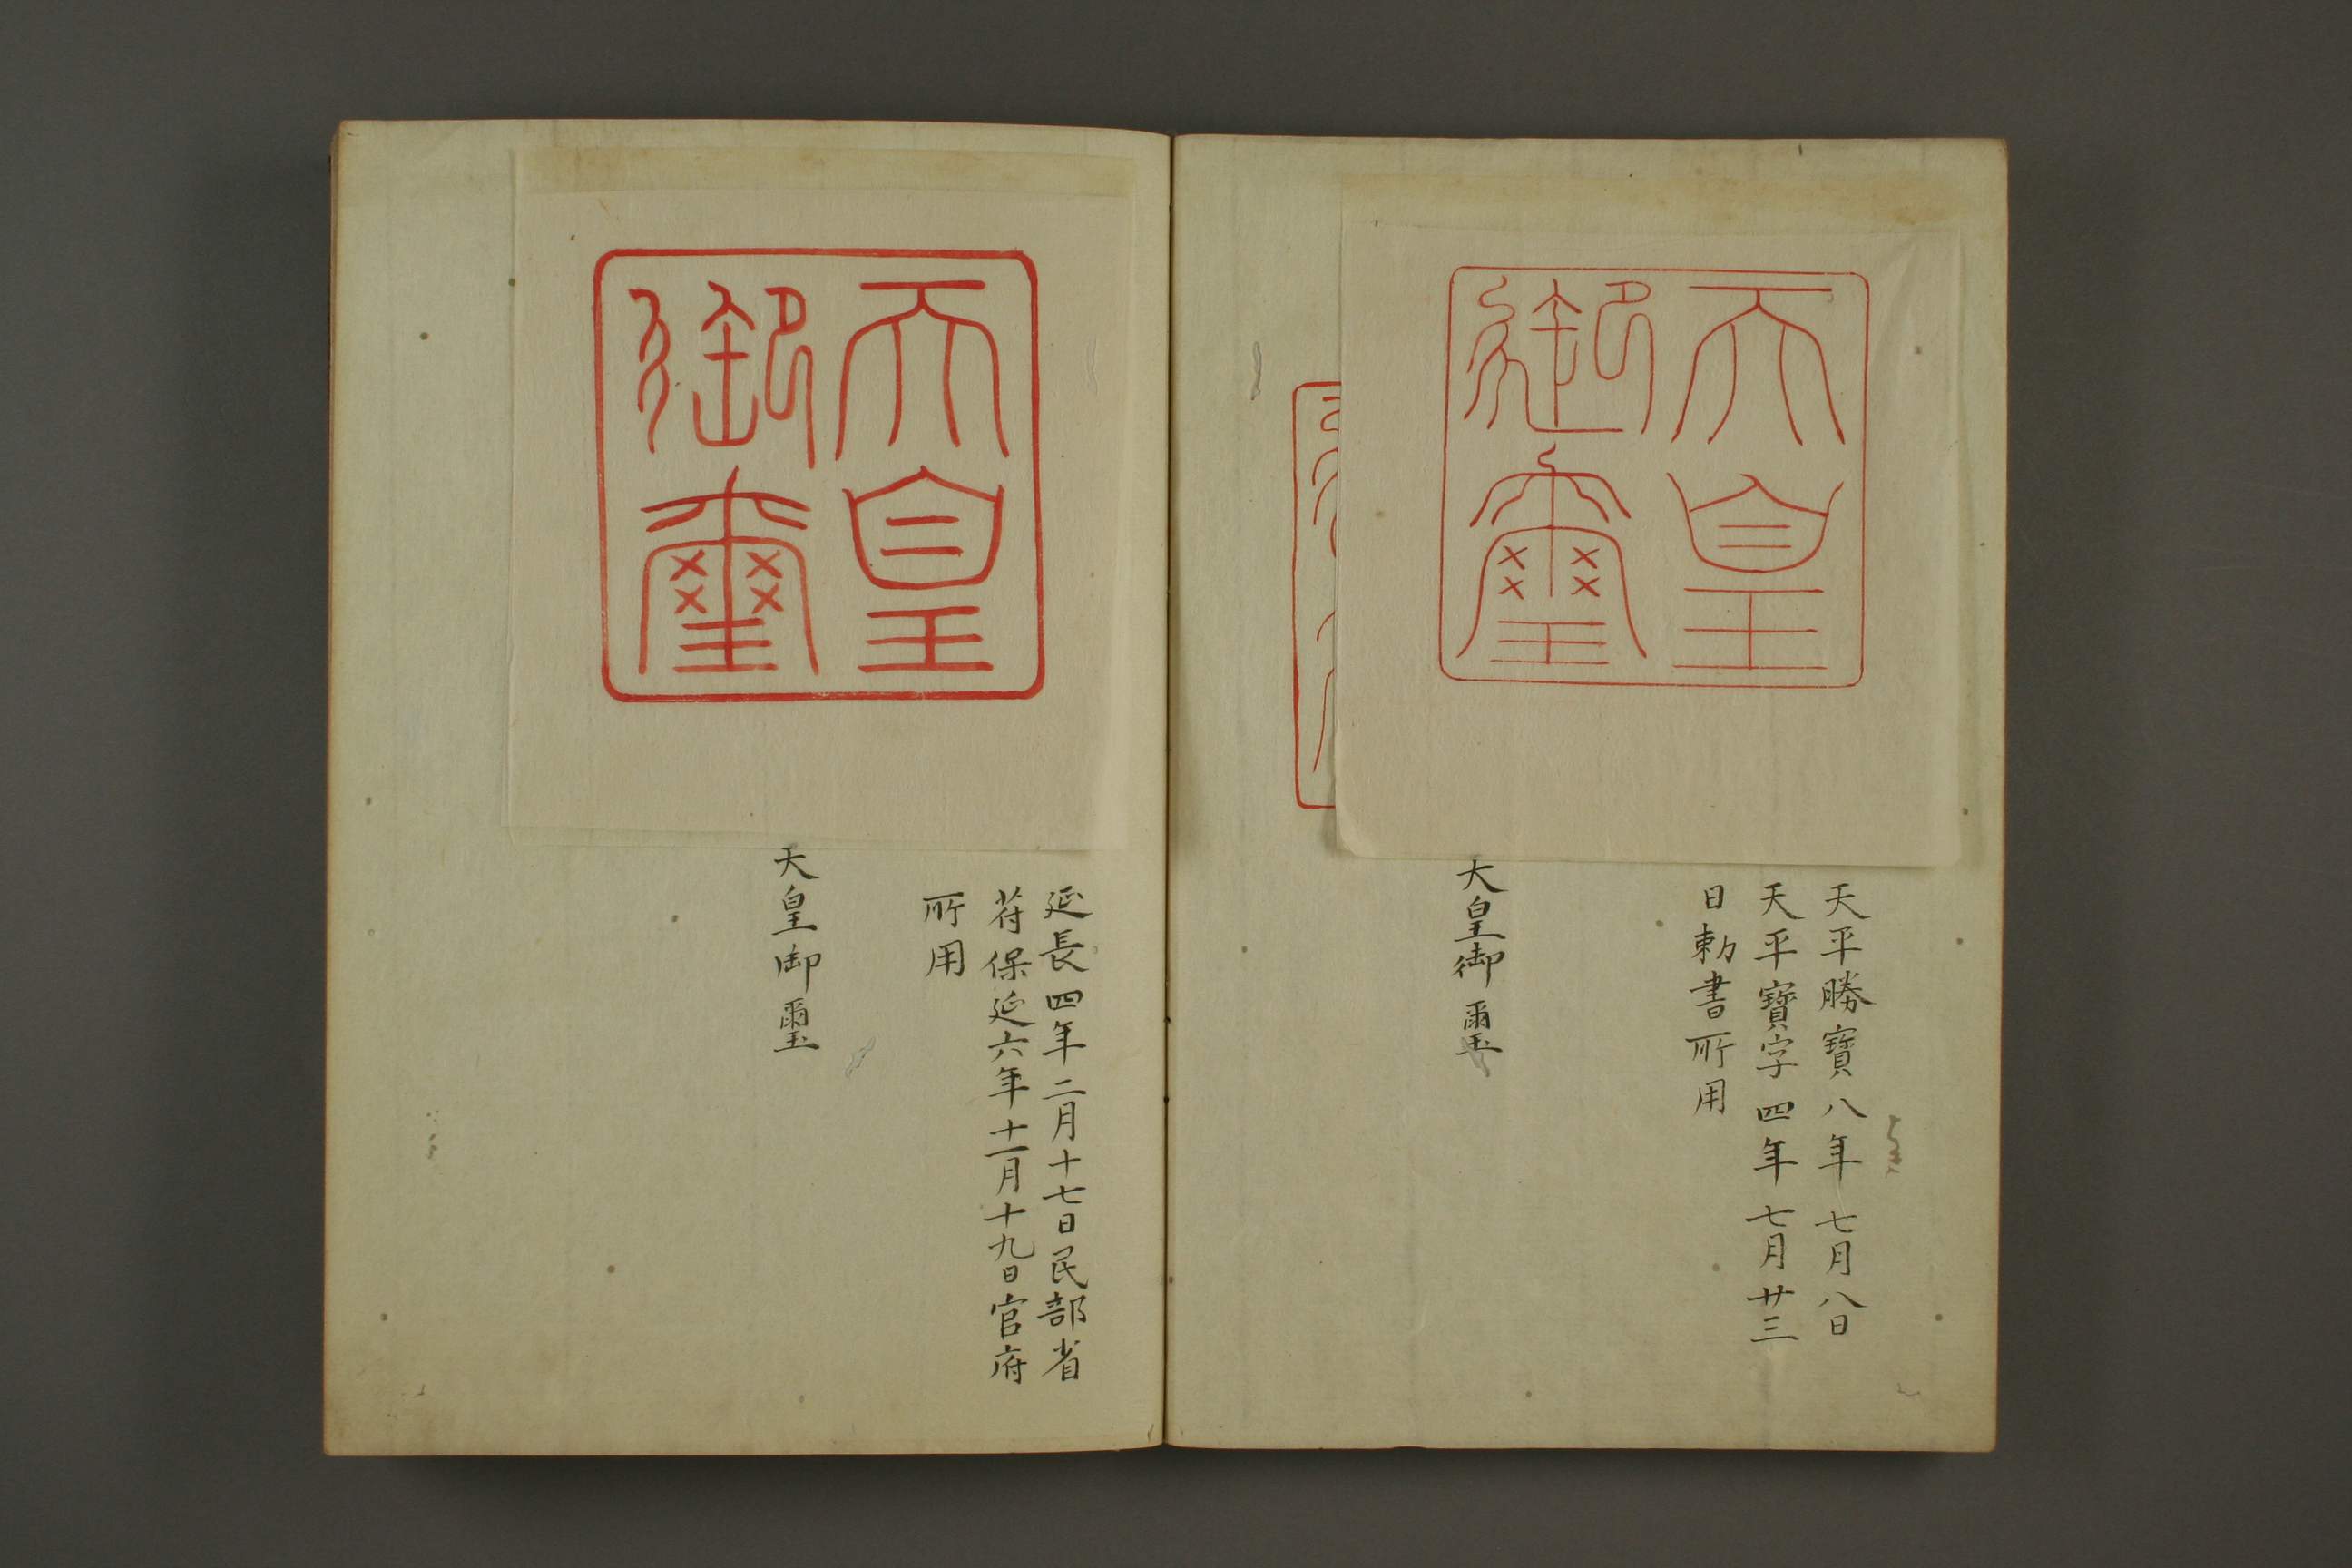 天皇
御璽
天平勝寳八年七月八日
天平寳字四年七月廿三
日勅書所用
天皇御璽
天皇
御璽
延長四年二月十七日民部省
苻保延六年十一月十九日官府
所用
天皇御璽